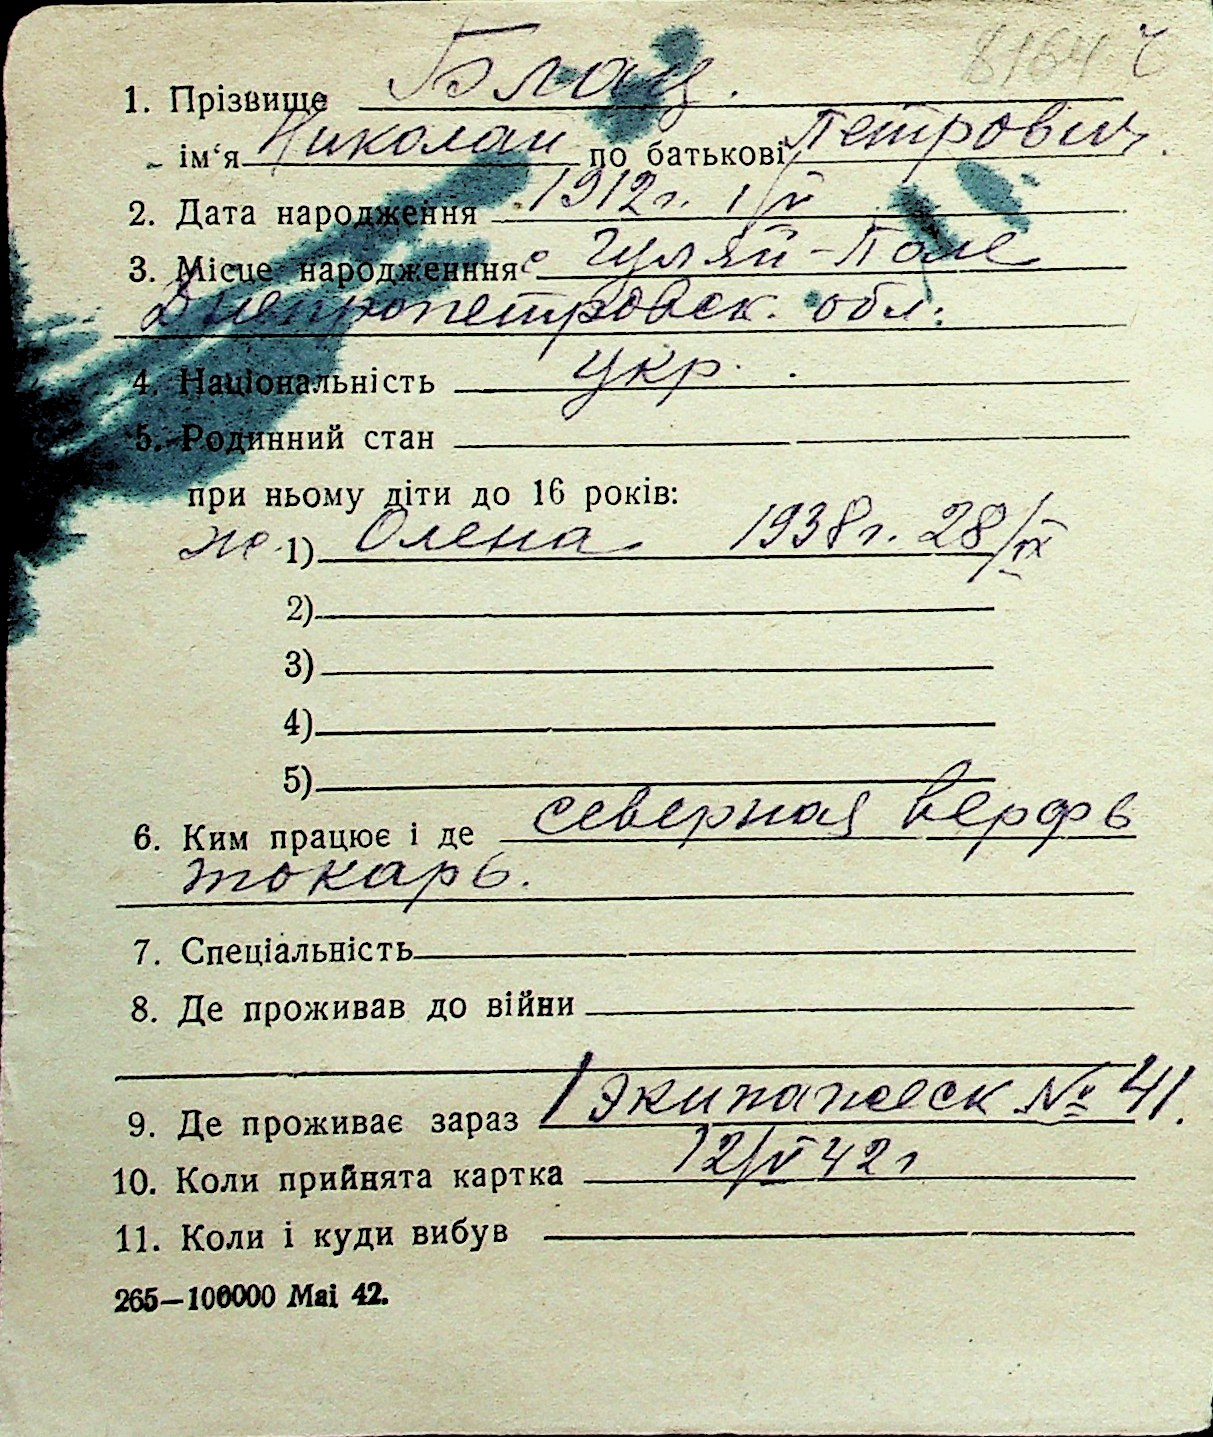 8164
1. Прізвище Блащ.
ім'я Николай по батькові Петрович.
2. Дата народження 1912г. 1/V
3. Місце народженння с Гуляй-Поле
Днепропетровск. обл.
4. Національність укр.
5. Родинний стан
при ньому діти до 16 років:
1) Олена 1938г. 28/IX
2)
3)
4)
5)
6. Ким працює і де северная верфь
токарь.
7. Спеціальність
8. Де проживав до війни
9. Де проживає зараз Экипажеск № 41.
10. Коли прийнята картка 12/V 42г
11. Коли і куди вибув
265—100000 Mai 42.